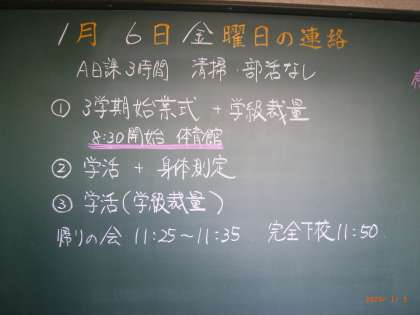 1月 6日 金曜日の連絡
A日課3時間 清掃・部活なし
① 3学期始業式 + 学級裁量
8:30開始 体育館
② 学活 + 身体測定
③ 学活(学級裁量)
帰りの会 11:25~11:35 完全下校11:50